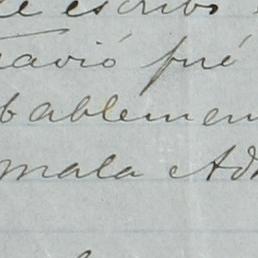 le escribi
tavió fué
bablemen
mala Ad